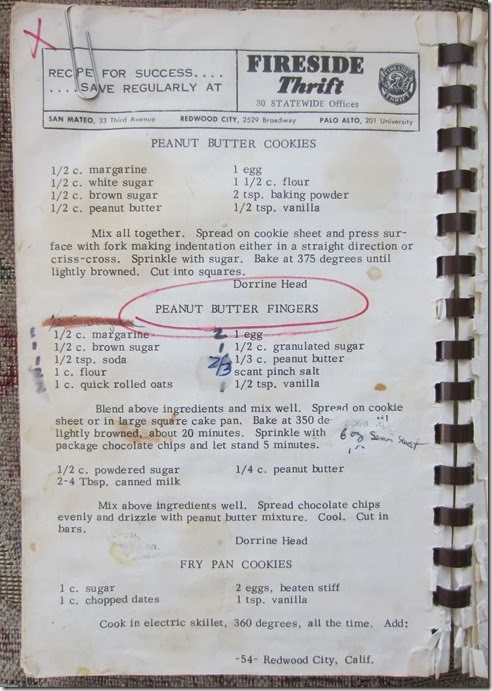 X
RECIPE FOR SUCCESS....
....SAVE REGULARLY AT
FIRESIDE
Thrift
30 STATEWIDE Offices
FIRESIDE
THRIFT
SAN MATEO, 33 Third Avenue REDWOOD CITY, 2529 Broadway PALO ALTO, 201 University
PEANUT BUTTER COOKIES
1/2 c. margarine 1 egg
1/2 c. white sugar 1 1/2 c. flour
1/2 c. brown sugar 2 tsp. baking powder
1/2 c. peanut butter 1/2 tsp. vanilla
Mix all together. Spread on cookie sheet and press sur-
face with fork making indentation either in a straight direction or
criss-cross. Sprinkle with sugar. Bake at 375 degrees until
lightly browned. Cut into squares.
Dorrine Head
PEANUT BUTTER FINGERS
1/2 c. margarine 2 1 egg
1 1/2 c. brown sugar 1 1/2 c. granulated sugar
1 1/2 tsp. soda 2/3 1/3 c. peanut butter
2 1 c. flour scant pinch salt
2 1 c. quick rolled oats 1 1/2 tsp. vanilla
Blend above ingredients and mix well. Spread on cookie
sheet or in large square cake pan. Bake at 350 de-
lightly browned, about 20 minutes. Sprinkle with 6 oz Semi Sweet
package chocolate chips and let stand 5 minutes.
1/2 c. powdered sugar 1/4 c. peanut butter
2-4 Tbsp. canned milk
Mix above ingredients well. Spread chocolate chips
evenly and drizzle with peanut butter mixture. Cool. Cut in
bars.
Dorrine Head
FRY PAN COOKIES
1 c. sugar 2 eggs, beaten stiff
1 c. chopped dates 1 tsp. vanilla
Cook in electric skillet, 360 degrees, all the time. Add:
-54- Redwood City, Calif.